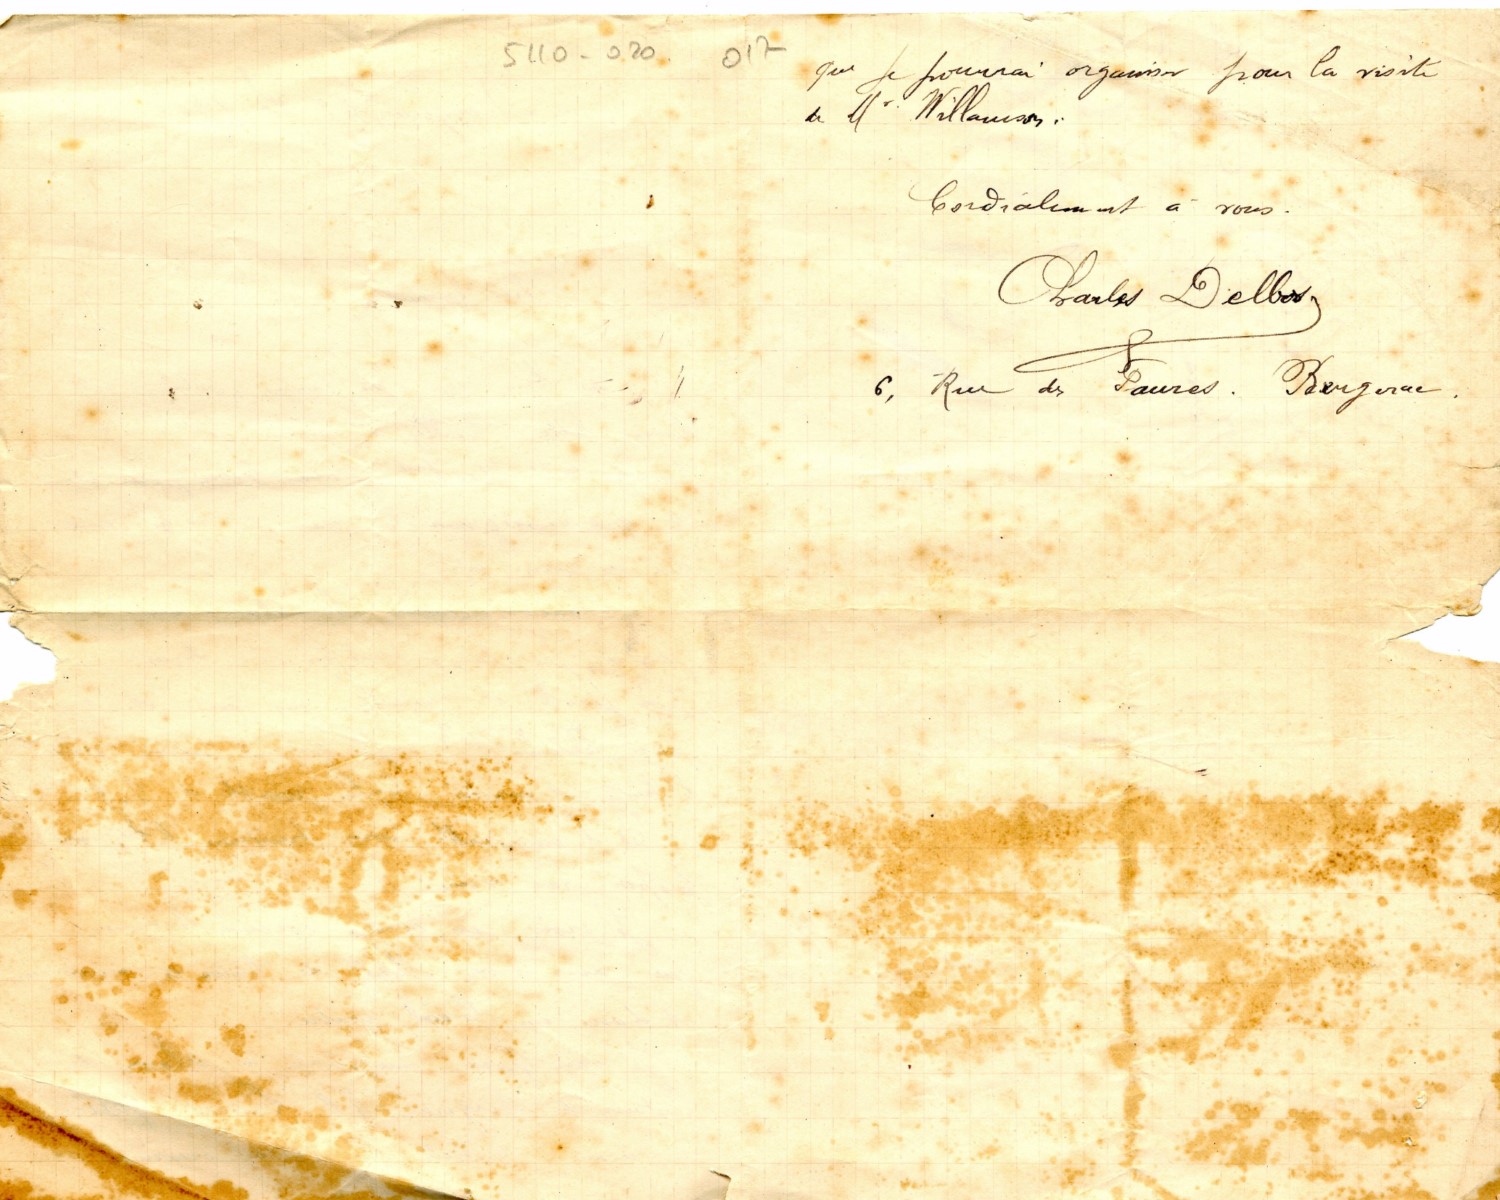 5110-020. 017
que je pourrai organiser pour la visite
de Mr. Willamson.
Cordialement à vous.
Charles Delbos
6, Rue des Faures. Bergerac.